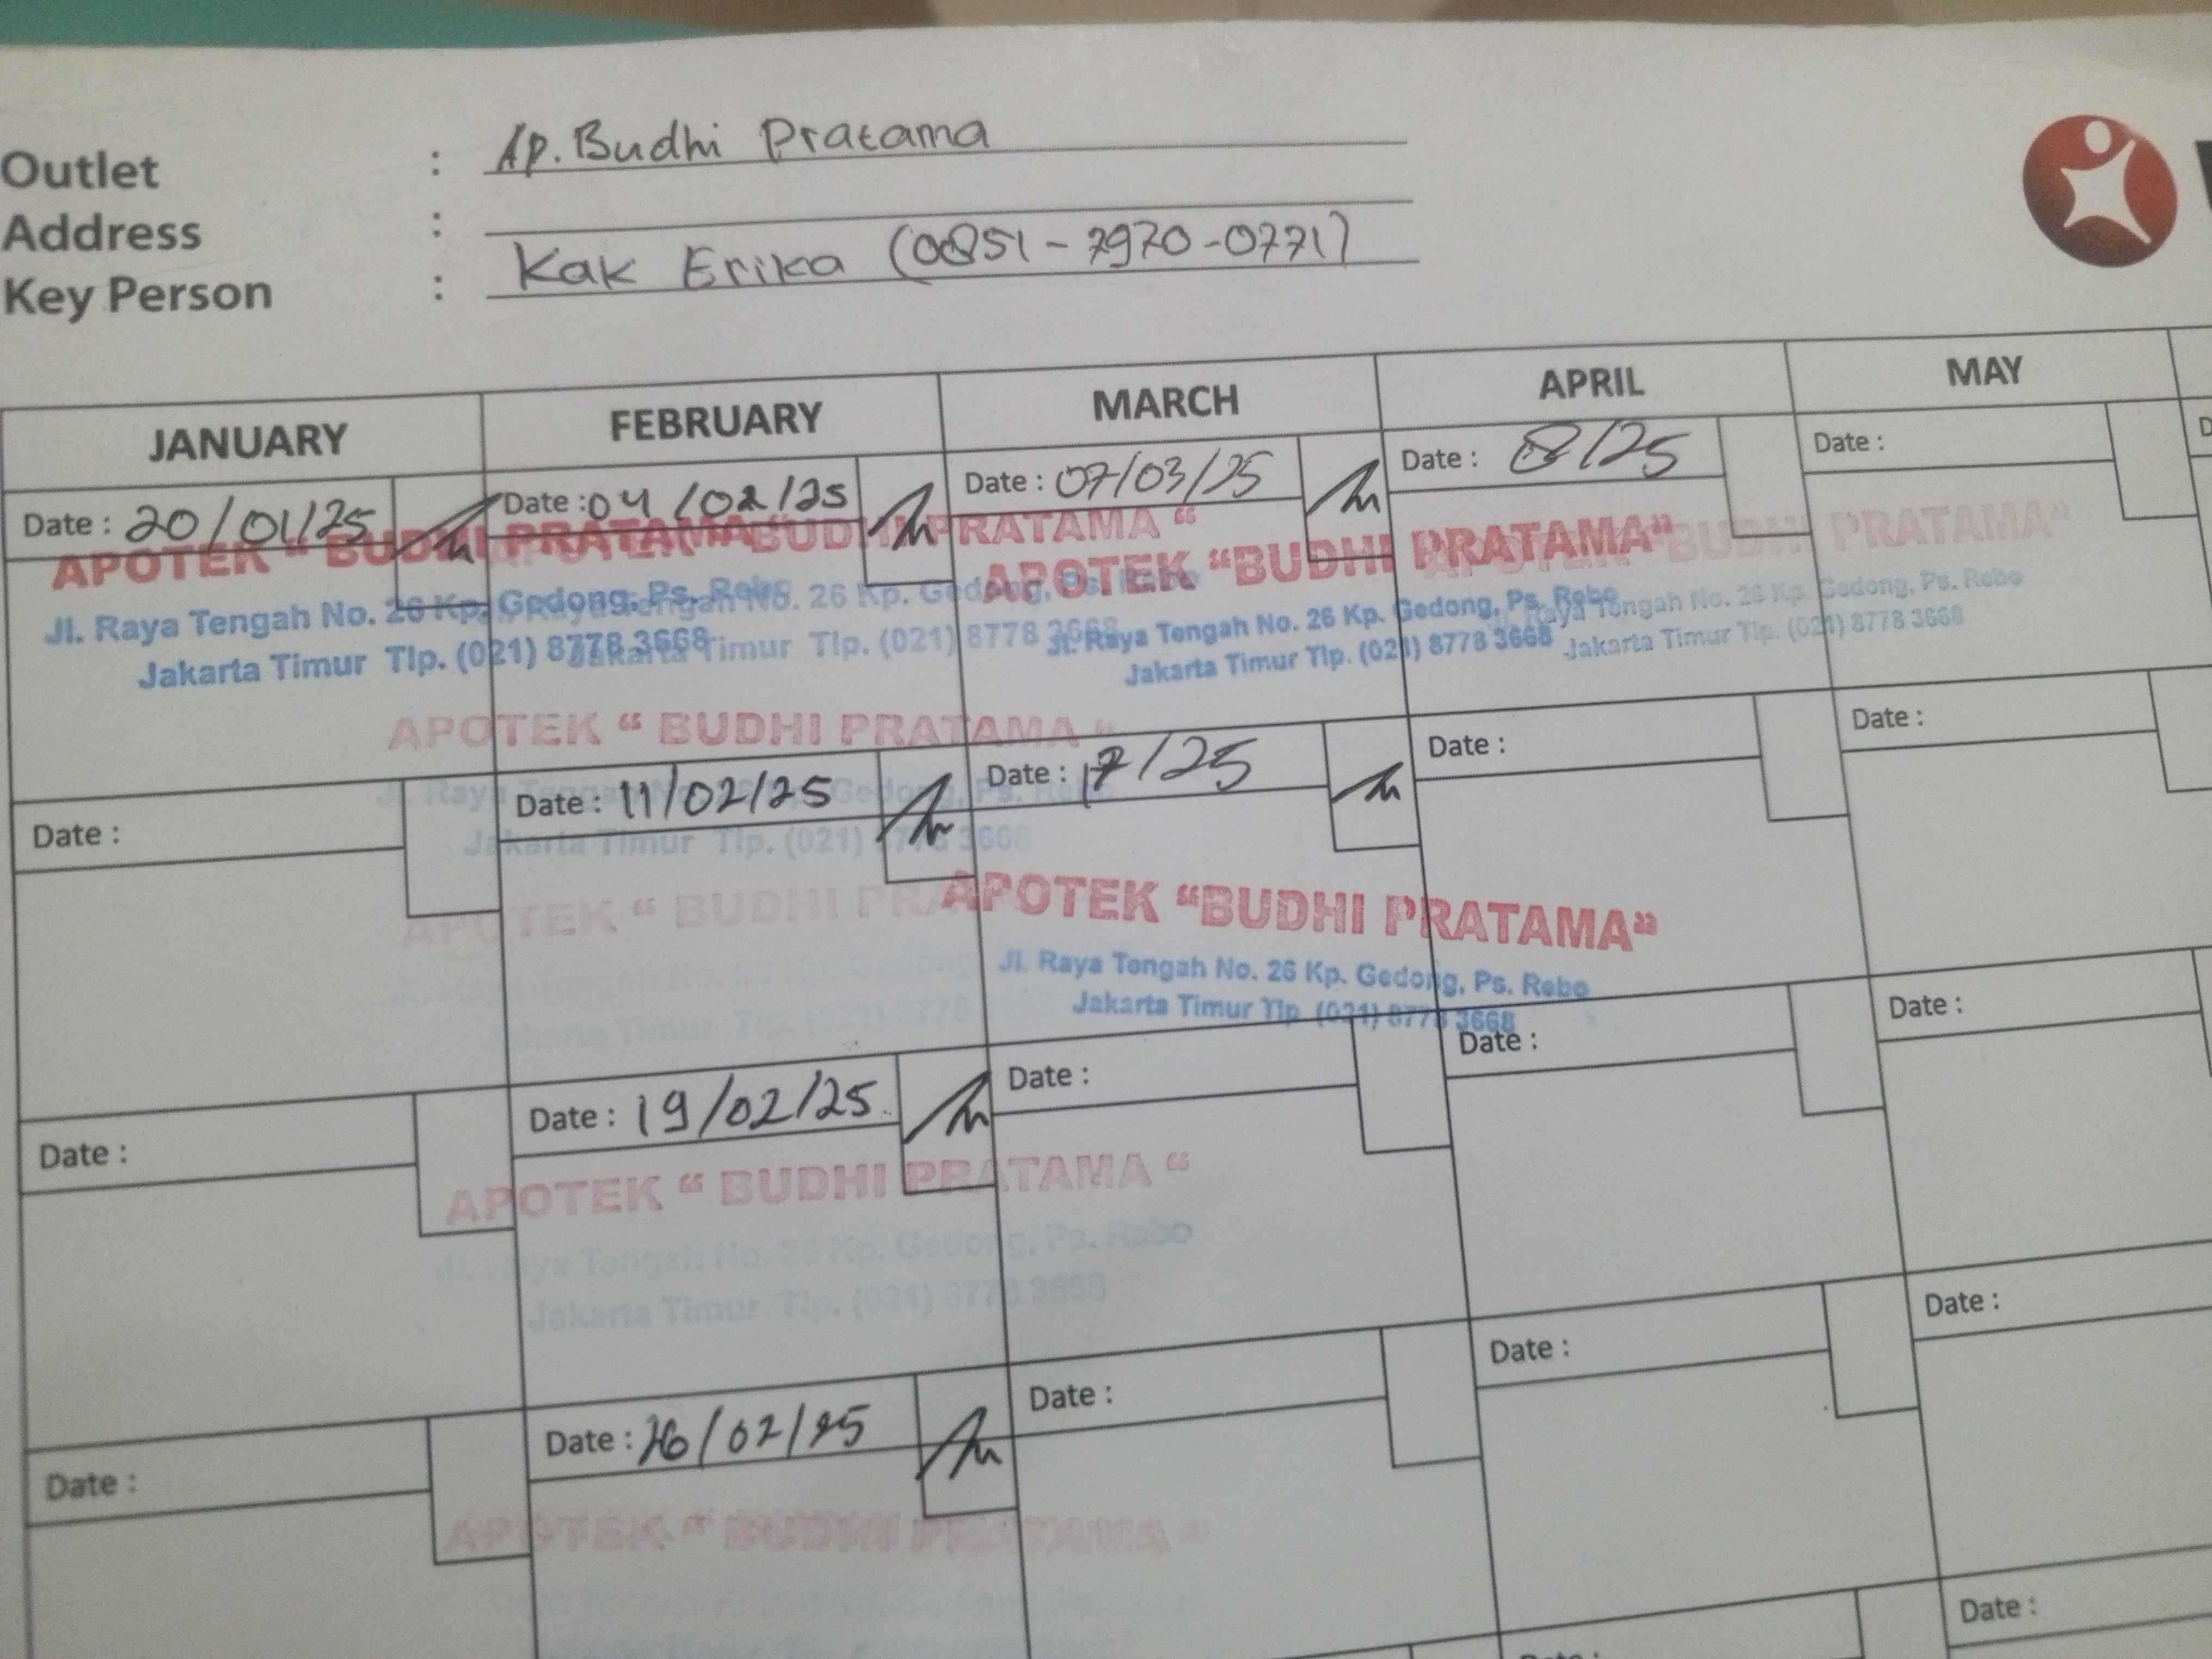 Outlet : Ap. Budhi Pratama
Address :
Key Person : Kak Erika (0851-7970-0771)
JANUARY FEBRUARY MARCH APRIL MAY
Date : 20/01/25 Date : 04/02/25 Date : 07/03/25 Date : 8/25 Date :
APOTEK " BUDHI PRATAMA BUDHI PRATAMA " APOTEK "BUDHI PRATAMA" BUDHI PRATAMA"
Jl. Raya Tengah No. 26 Kp. Gedong, Ps. Rebo No. 26 Kp. Gedong, Ps. Jl. Raya Tengah No. 26 Kp. Gedong, Ps. Rebo Raya Tengah No. 26 Kp. Gedong, Ps. Rebo
Jakarta Timur Tlp. (021) 8778 3668 Jakarta Timur Tlp. (021) 8778 3668 Jakarta Timur Tlp. (021) 8778 3668 Jakarta Timur Tlp. (021) 8778 3668
APOTEK " BUDHI PRATAMA "
Date : Date : 11/02/25 Date : 17/25 Date : Date :
Jl. Raya Tengah No. Gedong, Ps. Rebo
Jakarta Timur Tlp. (021) 8778 3668
APOTEK " BUDHI APOTEK "BUDHI PRATAMA"
Jl. Raya Tengah No. 26 Kp. Gedong, Ps. Rebo
Jakarta Timur Tlp. (021) 8778 3668
Date : Date : 19/02/25 Date : Date : Date :
APOTEK " BUDHI PRATAMA "
Jl. Raya Tengah No. 26 Kp. Gedong, Ps. Rebo
Jakarta Timur Tlp. (021) 8778 3668
Date : Date : 26/02/25 Date : Date : Date :
APOTEK " BUDHI PRATAMA "
Date :